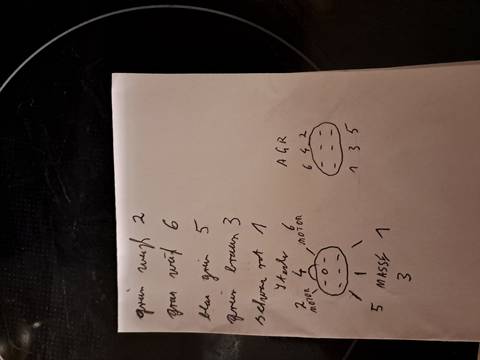 grün weiß 2
grau weiß 6
blau grün 5
grün braun 3
schwarz rot 1
Stecker
2 4 6
MOTOR MOTOR
1
5 MASSE 1
3
AGR
6 4 2
1 3 5